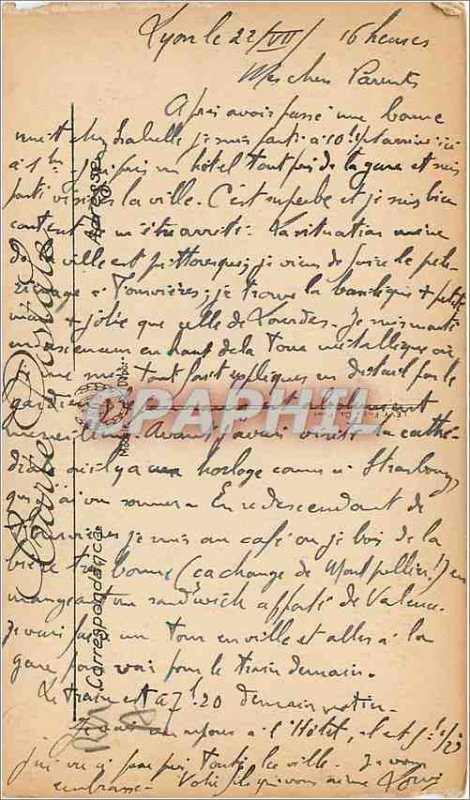 Lyon le 22/VII/ 16 heures
Mes chers Parents
Après avoir passé une bonne
nuit chez Isabelle je suis parti à 10h et arrivé ici
à 1h. J'ai pris un hôtel tout près de la gare et suis
parti visiter la ville. C'est superbe et je suis bien
content de m'être arrêté. La situation même
de la ville est pittoresque; je viens de faire le pèle-
rinage à Fourvières; je trouve la basilique + petite
mais + jolie que celle de Lourdes. Je suis monté
en ascenseur en haut de la Tour métallique où
je me suis tout fait expliquer en détail par le
gardien
merveilleux. Avant j'avais visité la cathé-
drale où il y a un horloge comme à Strasbourg
que j'ai vu sonner. En redescendant de
Fourvières je suis au café où je bois de la
bière très bonne (ça change de Montpellier!) en
mangeant un sandwich apporté de Valence.
Je vais faire un Tour en ville et aller à la
gare pour voir pour le train demain.
Le train est à 7h20 demain matin.
Je suis au repos à l'Hôtel, il est
j'ai vu à peu près toute la ville. Je vous
embrasse. Votre fils qui vous aime
Carte Postale
Correspondance
Adresse
CPAPHIL